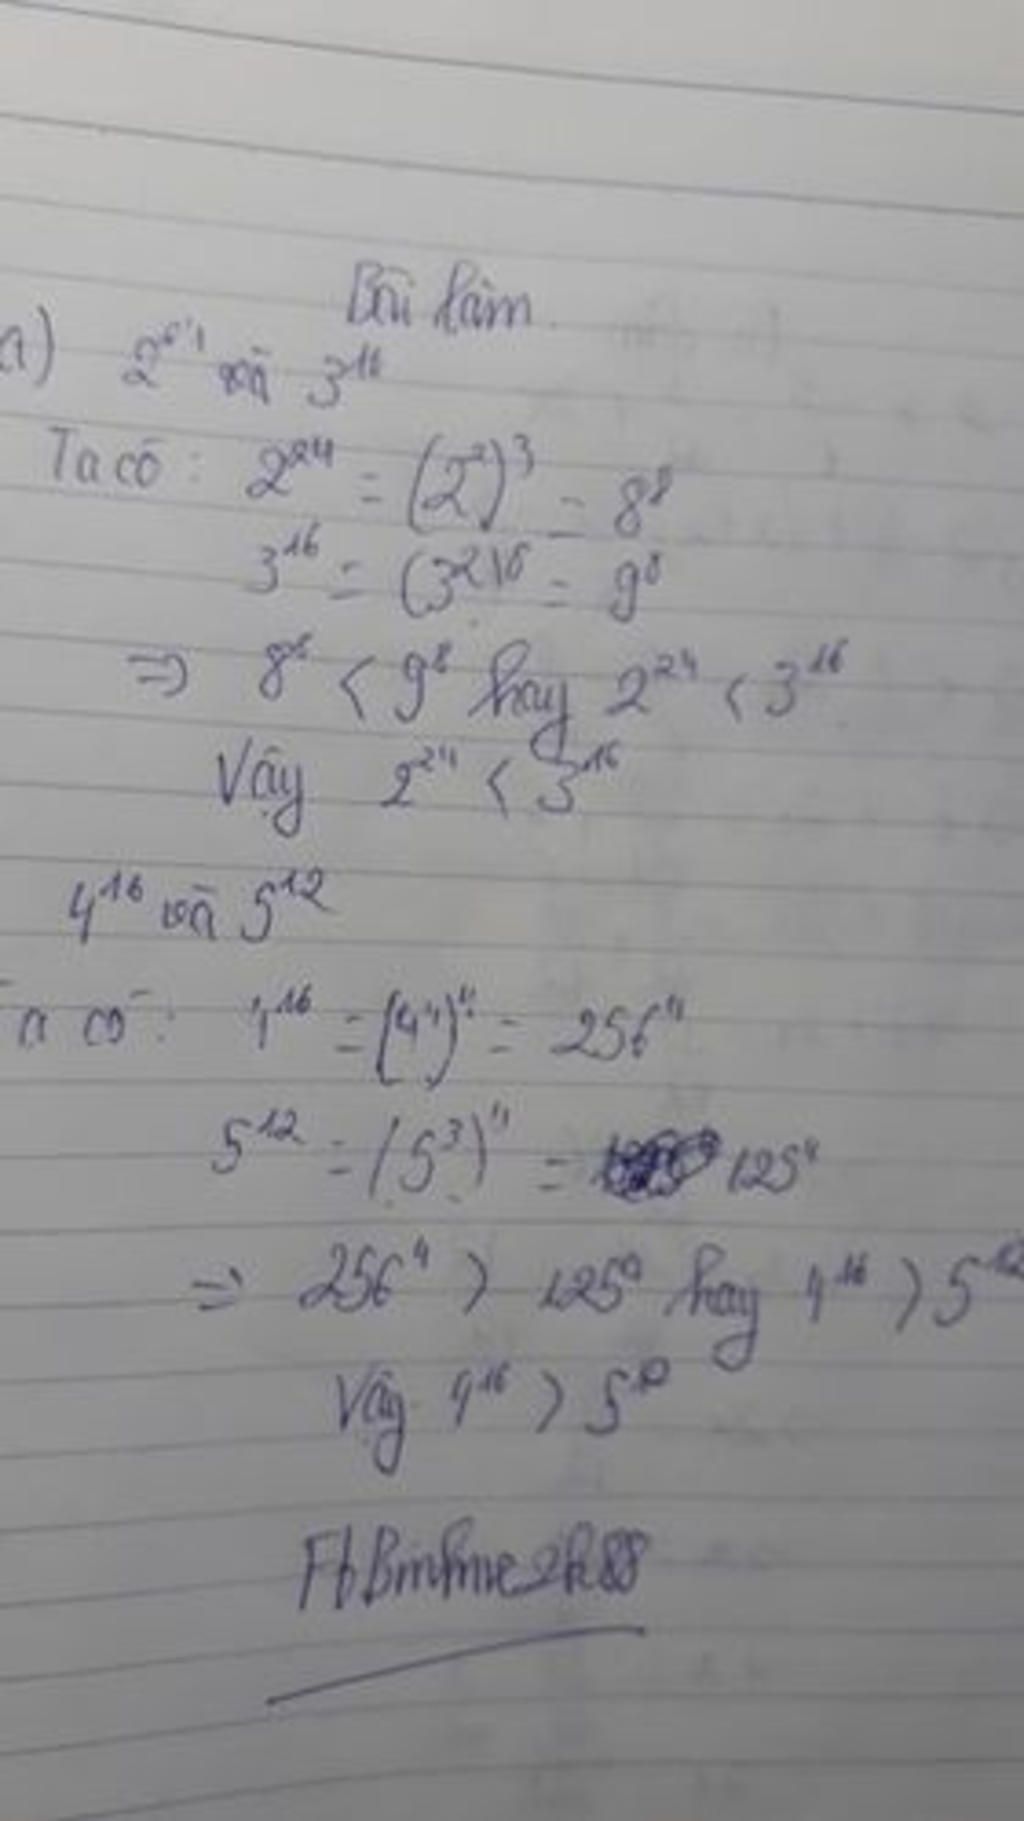 Bài làm
a) 2²⁴ và 3¹⁶
Ta có: 2²⁴ = (2²)³ = 8⁸
3¹⁶ = (3²)⁸ = 9⁸
=> 8⁸ < 9⁸ hay 2²⁴ < 3¹⁶
Vậy 2²⁴ < 3¹⁶
4¹⁶ và 5¹²
Ta có: 4¹⁶ = (4⁴)⁴ = 256⁴
5¹² = (5³)⁴ = 125⁴
=> 256⁴ > 125⁴ hay 4¹⁶ > 5¹²
Vậy 4¹⁶ > 5¹²